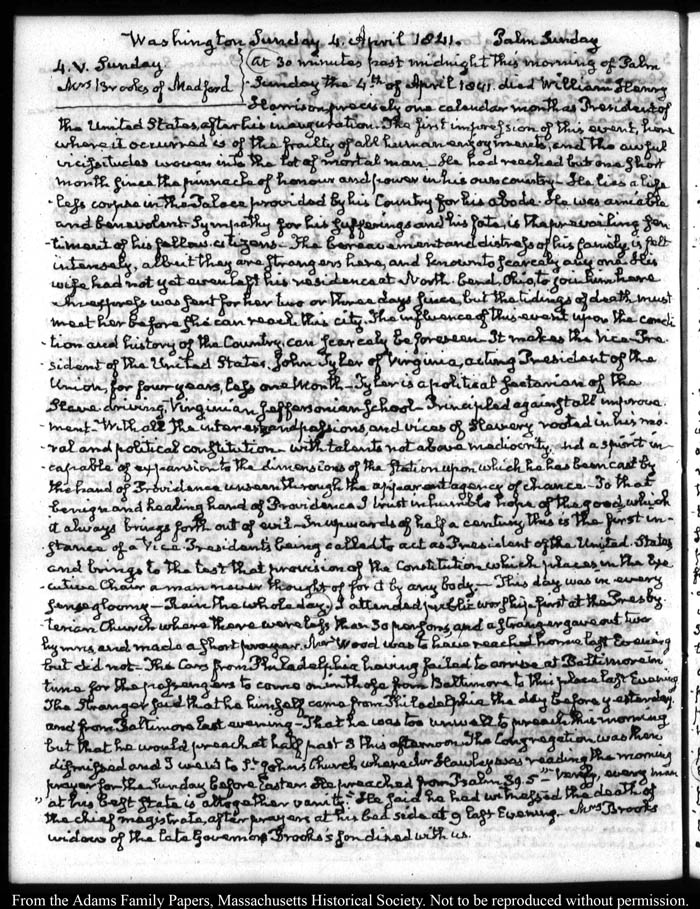 Washington Sunday 4. April 1841. Palm Sunday
4. V. Sunday
Mrs Brooks of Medford
At 30 minutes past midnight this morning of Palm
Sunday the 4th of April 1841. died William Henry
Harrison precisely one calendar month as President of
the United States, after his inauguration. The first impression of this event, here
where it occurred is of the frailty of all human enjoyments, and the awful
vicissitudes woven into the lot of mortal man. He had reached but one short
month since the pinnacle of honour and power in his own country. He lies a life-
-less corpse in the Palace provided by his Country for his abode. He was amiable
and benevolent. Sympathy for his sufferings and his fate, is the prevailing sen-
-timent of his fellow-citizens. The bereavement and distress of his family is felt
intensely, albeit they are strangers here, and known to scarcely any one. His
wife had not yet even left his residence at North bend, Ohio, to join him here
An express was sent for her two or three days since, but the tidings of death must
meet her before she can reach this city. The influence of this event upon the condi-
-tion and history of the Country, can scarcely be foreseen. It makes the Vice-Pre-
-sident of the United States, John Tyler of Virginia, acting President of the
Union, for four years, less one Month. Tyler is a political sectarian of the
Slave driving, Virginian Jeffersonian School. Principled against all improve-
-ment. With all the interests and passions, and vices of Slavery rooted in his mo-
-ral and political constitution. with talents not above mediocrity, and a spirit in-
-capable of expansion to the dimensions of the Station upon which he has been cast by
the hand of Providence unseen through the apparent agency of chance. To that
benign and healing hand of Providence I trust in humble hope of the good which
it always brings forth out of evil. In upwards of half a century, this is the first in-
-stance of a Vice-President's being called to act as President of the United States
and brings to the test that provision of the Constitution which places in the Exe-
-cutive Chair a man never thought of for it by any body. This day was in every
sense gloomy. Rain the whole day. I attended public worship first at the Presby-
-terian Church where there were less than 30 persons, and a stranger gave out two
hymns and made a short prayer. Mr Wood was to have reached home last Evening
but did not. The Cars from Philadelphia having failed to arrive at Baltimore in
time for the passengers to come on in those from Baltimore to this place last Evening
The Stranger said that he himself came from Philadelphia the day before yesterday.
and from Baltimore last evening. That he was too unwell to preach this morning
but that he would preach at half past 3 this afternoon. The Congregation was then
dismissed and I went to St. John's Church where Mr Hawley was reading the morning
prayer for the Sunday before Easter. He preached from Psalm 39. 5 "Verily, every man
"at his best State is altogether vanity." He said he had witnessed the death of
the chief magistrate, after prayers at his bed side at 9 last Evening. Mrs Brooks
widow of the late Governor Brooks's son dined with us.
From the Adams Family Papers, Massachusetts Historical Society. Not to be reproduced without permission.